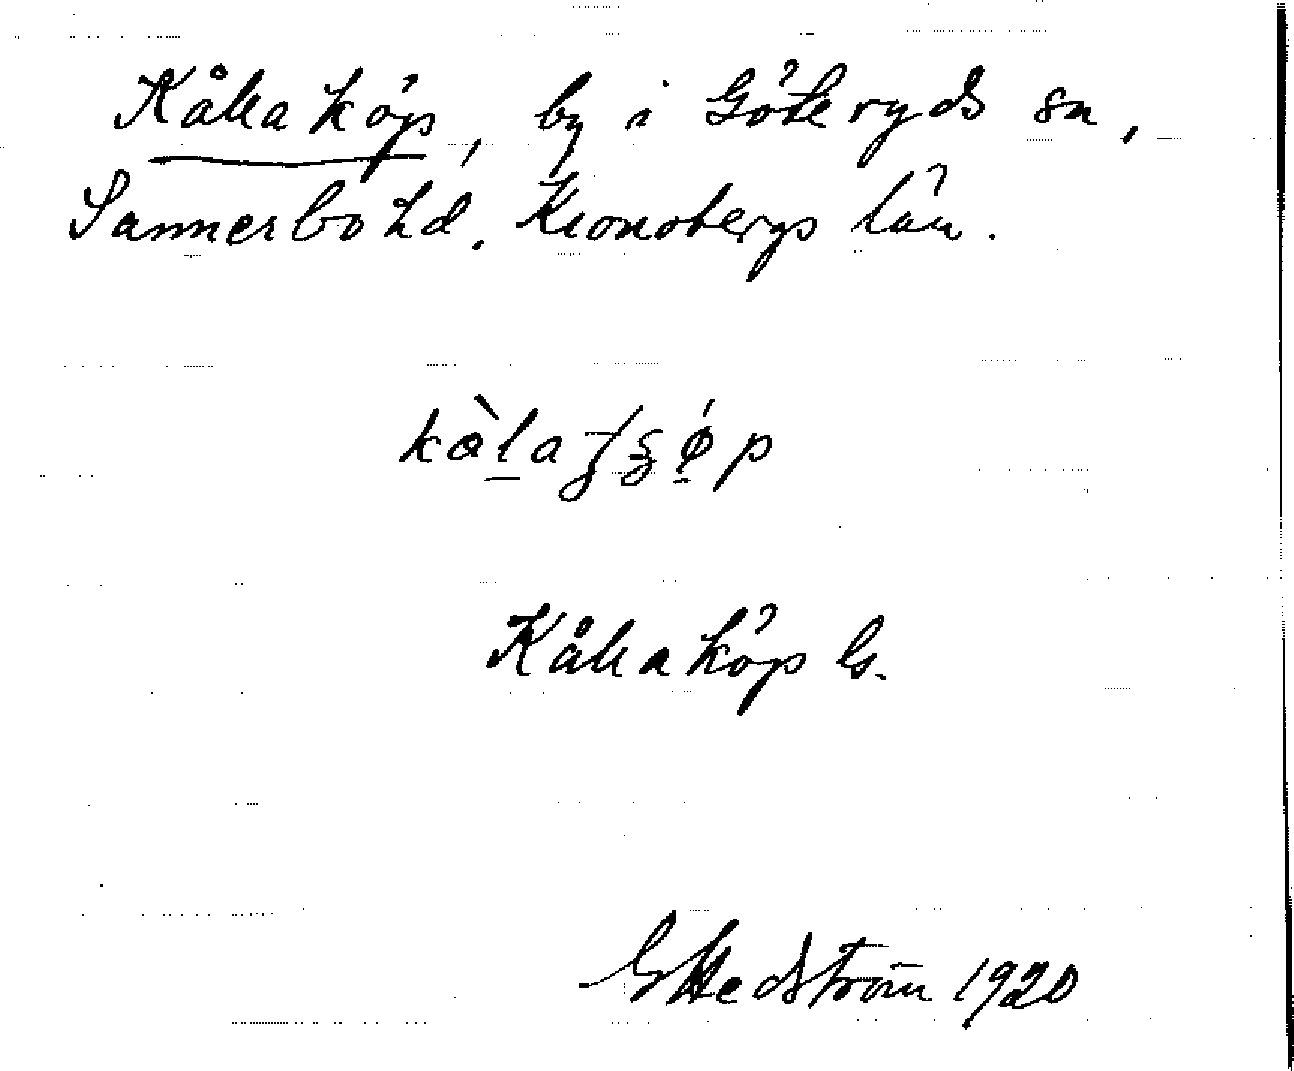 Kållaköp, by i Göteryds sn,
Sunnerbo hd. Kronobergs län.
Kållaköp G.
G Hedström 1920